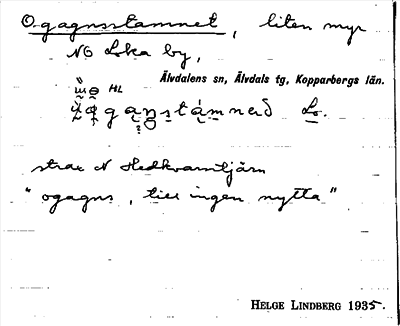 Ogagnsstamnet, liten myr
NO Loka by,
Älvdalens sn, Älvdals tg, Kopparbergs län.
HL
Lo.
strax N Hedkvarntjärn
"ogagns, till ingen nytta"
HELGE LINDBERG 1935.